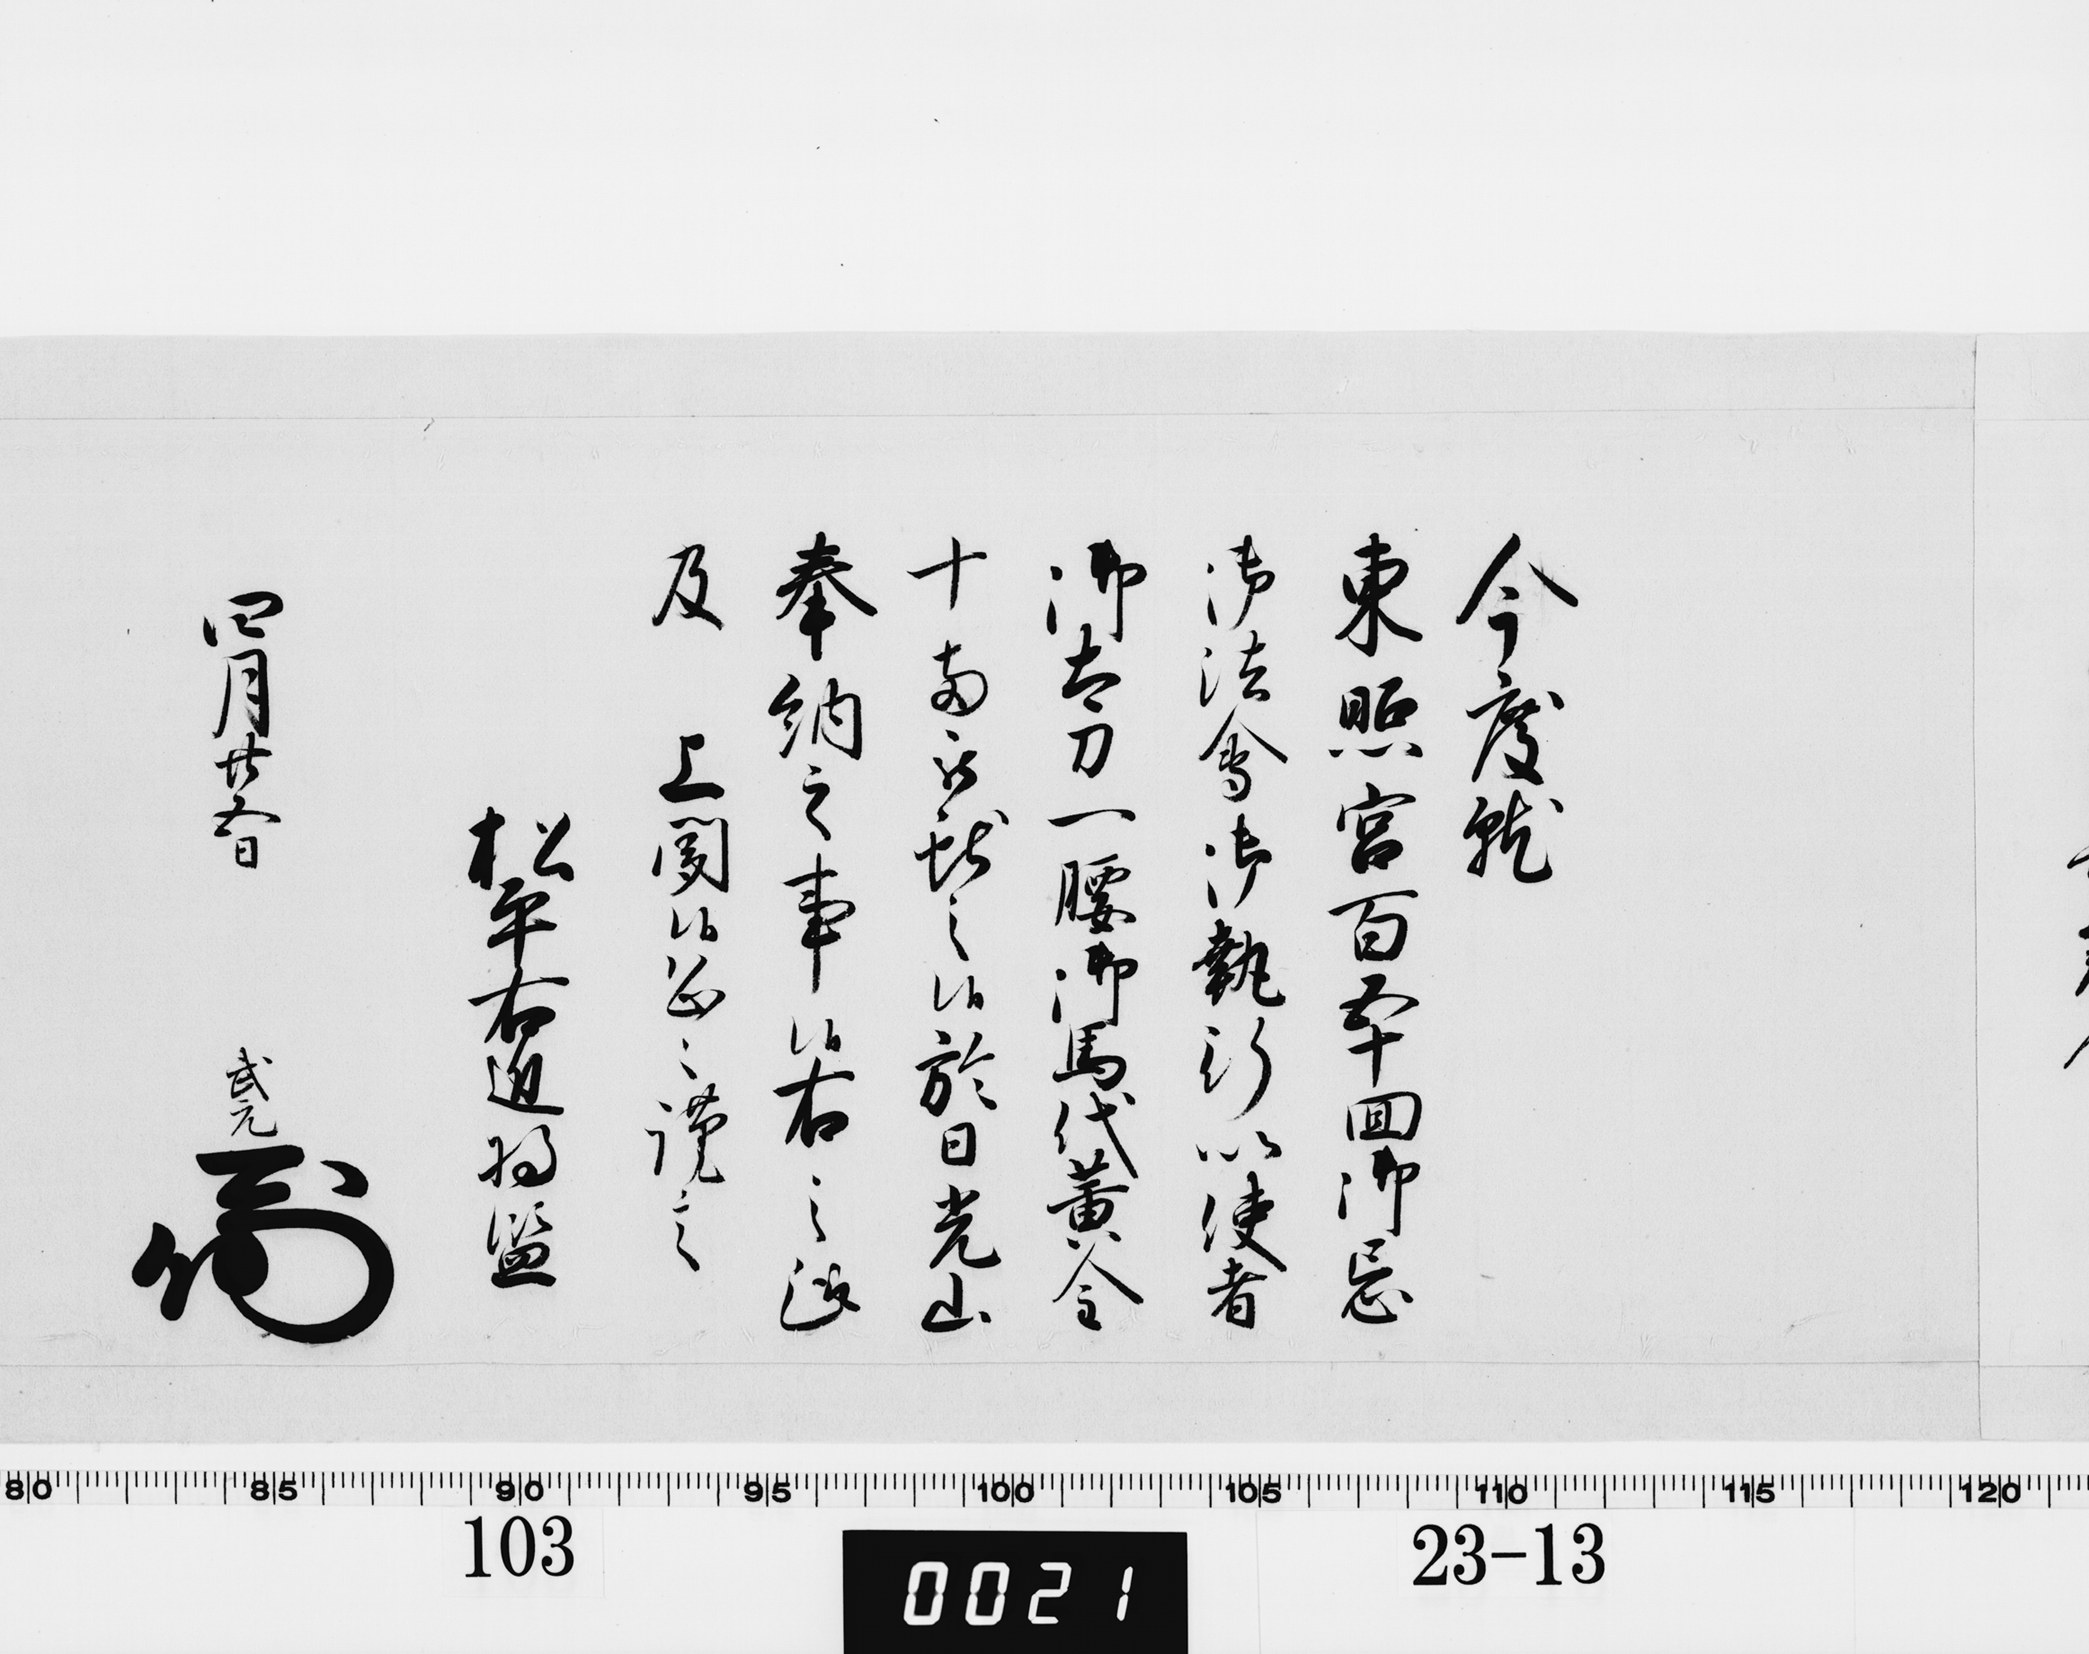 今度就
東照宮百五十回御忌
御法會御執行以使者
御太刀一腰御馬代黄金
十両被献之候於日光山
奉納之事候右之趣
及　上聞候恐々謹言
松平右近将監
四月廿五日　武元
80 85 90 95 100 105 110 115 120
103
0021
23-13